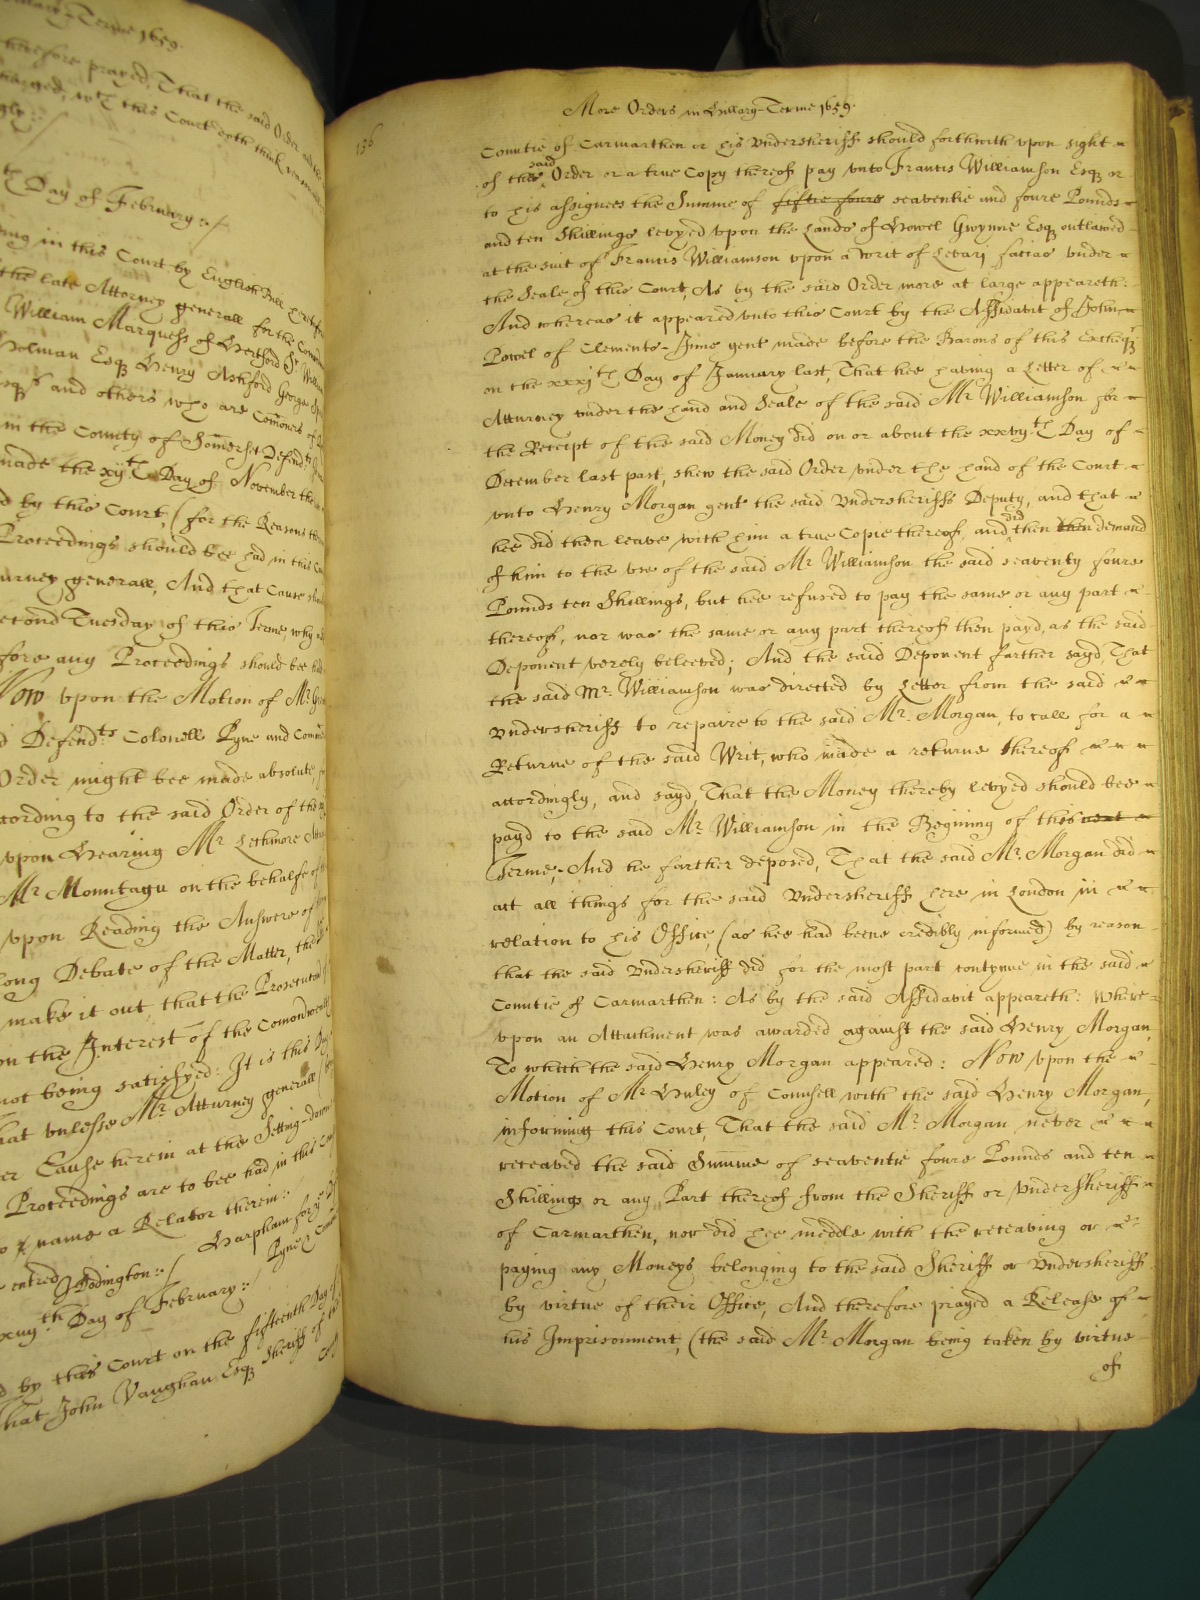 Terme 1659.
therefore prayed, That the said Order
wth this Court doth think reasonable
th Day of February ://
ding in this Court by English Bill
the late Attorney generall for the Common
William Marquess of Hertford Sr William
Holman Esq Henry Ashford George
Esqs and others who are Comoners of
in the County of Somerset Defendts
made the xijth Day of November
d by this Court, (for the Reasons
Proceedings should bee had in this
turney generall, And that Cause
second Tuesday of this Terme, why
fore any Proceedings should bee had
Now vpon the Motion of Mr
d Defendts Colonell Pyne and
Order might bee made absolute
cording to the said Order of the
vpon Hearing Mr Lechmore
Mr Mountagu on the behalfe of
vpon Reading the Answere of
long Debate of the Matter, the
make it out that the Prosecution
on the Interest of the Comonwealth
not being satisfyed: It is this Day
hat vnlesse Mr Atturney generall
er Cause herein at the Setting-down
Proceedings are to bee had in this
to name a Relator therein ://
Harpham for ye
entred J Dodington :/ Pyne &
xxiijth Day of February ://
d by this Court on the fifteenth Day of
That John Vaughan Esq Sheriff of the
Coun
156
More Orders in Hillary-Terme 1659.
Countie of Carmarthen or his Vndersheriff should forthwith vpon sight
of the said Order or a true Copy thereof pay vnto Francis Williamson Esq or
to his assignees the Summe of fiftie foure seaventie and foure Pounds
and ten Shillings levyed vpon the Lands of Howel Gwynne Esq outlawed
at the suit of Francis Williamson vpon a Writ of Levarj facias vnder
the Seale of this Court, As by the said Order more at large appeareth:
And whereas it appeared vnto this Court by the Affidavit of John
Powel of Clements-Inne gent made before the Barons of this Excheqr
on the xxxjth Day of January last, That hee having a Letter of
Atturney vnder the hand and Seale of the said Mr Williamson for
the Receipt of the said Money did on or about the xxviijth Day of
December last past, shew the said Order vnder the hand of the Court
vnto Henry Morgan gent the said Vndersheriffs Deputy, and that
hee did then leave with him a true Copie thereof, and did then then demand
of him to the vse of the said Mr Williamson the said seaventy foure
Pounds ten Shillings, but hee refused to pay the same or any part
thereof, nor was the same or any part thereof then payd, as the said
Deponent verely beleeved; And the said Deponent farther sayd, That
the said Mr. Williamson was directed by Letter from the said
Vndersheriff to repaire to the said Mr. Morgan, to call for a
Returne of the said Writ, who made a returne thereof
accordingly, and sayd, That the Money thereby levyed should bee
payd to the said Mr. Williamson in the Begining of this next
Terme, And he farther deposed, That the said Mr. Morgan did
act all things for the said Vndersheriff here in London in
relation to his Office, (as hee had beene credibly informed) by reason
that the said Vndersheriff did for the most part contynue in the said
Countie of Carmarthen: As by the said Affidavit appeareth: Where-
vpon an Attachment was awarded against the said Henry Morgan,
To which the said Henry Morgan appeared: Now vpon the
Motion of Mr Huley of Counsell with the said Henry Morgan,
informing this Court, That the said Mr. Morgan never
receaved the said Summe of seaventie foure Pounds and ten
Shillings or any Part thereof from the Sheriff or Vndersheriff
of Carmarthen, nor did hee meddle with the receaving or
paying any Moneys belonging to the said Sheriff or Vndersheriff
by virtue of their Office, And therefore prayed a Release of
his Imprisonment, (the said Mr. Morgan being taken by virtue
of